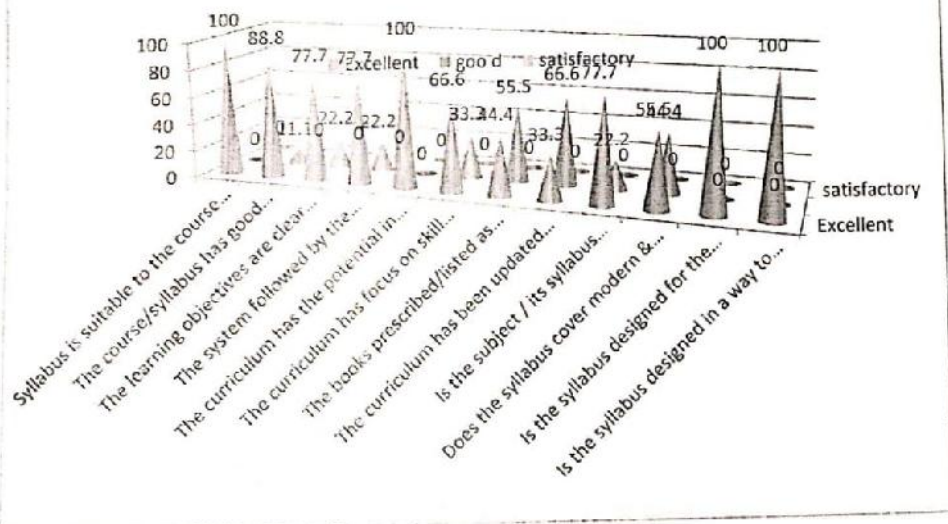 100
100
88.8
100
100
100
77.7 77.7
Excellent good satisfactory
66.6 77.7
80
66.6
55.5
60
33.3 44.4
55.5
40
0
11.1 0
22.2
0
22.2
0
0
0
0
0
33.3
0
22.2
0
0
0
0
20
0
0
0
satisfactory
Excellent
Syllabus is suitable to the course...
The course/syllabus has good...
The learning objectives are clear...
The system followed by the...
The curriculum has the potential in...
The curriculum has focus on skill...
The books prescribed/listed as...
The curriculum has been updated...
Is the subject / its syllabus...
Does the syllabus cover modern &...
Is the syllabus designed for the...
Is the syllabus designed in a way to...